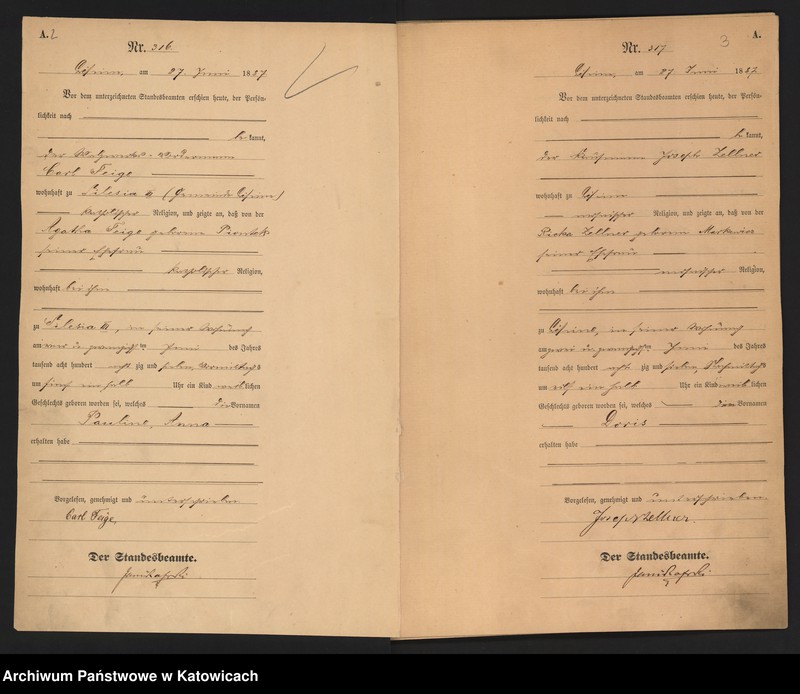 A.
Nr. 316
am 27. Juni 1887
Vor dem unterzeichneten Standesbeamten erschien heute, der Persön-
lichkeit nach
be kannt,
der
Carl Feige
wohnhaft zu Silesia VI (Gemeinde
katholischer Religion, und zeigte an, daß von der
Agatha Feige geborene Piontek
seiner Ehefrau
katholischer Religion,
wohnhaft bei ihm
zu Silesia VI, in seiner Wohnung
am vier und zwanzigsten Juni des Jahres
tausend acht hundert acht zig und sieben, Vormittags
um fünf ein halb Uhr ein Kind weiblichen
Geschlechts geboren worden sei, welches die Vornamen
Pauline, Anna
erhalten habe
Vorgelesen, genehmigt und unterschrieben
Carl Feige,
Der Standesbeamte.
3
A.
Nr. 317
am 27 Juni 1887
Vor dem unterzeichneten Standesbeamten erschien heute, der Persön-
lichkeit nach
be kannt,
der Kaufmann Joseph Zellner
wohnhaft zu
mosaischer Religion, und zeigte an, daß von der
Zellner geborene Markewicz
seiner Ehefrau
mosaischer Religion,
wohnhaft bei ihm
zu in seiner Wohnung
am zwei und zwanzigsten Juni des Jahres
tausend acht hundert acht zig und sieben, Nachmittags
um elf ein halb Uhr ein Kind weiblichen
Geschlechts geboren worden sei, welches den Vornamen
Doris
erhalten habe
Vorgelesen, genehmigt und unterschrieben.
Joseph Zellner.
Der Standesbeamte.
Archiwum Państwowe w Katowicach